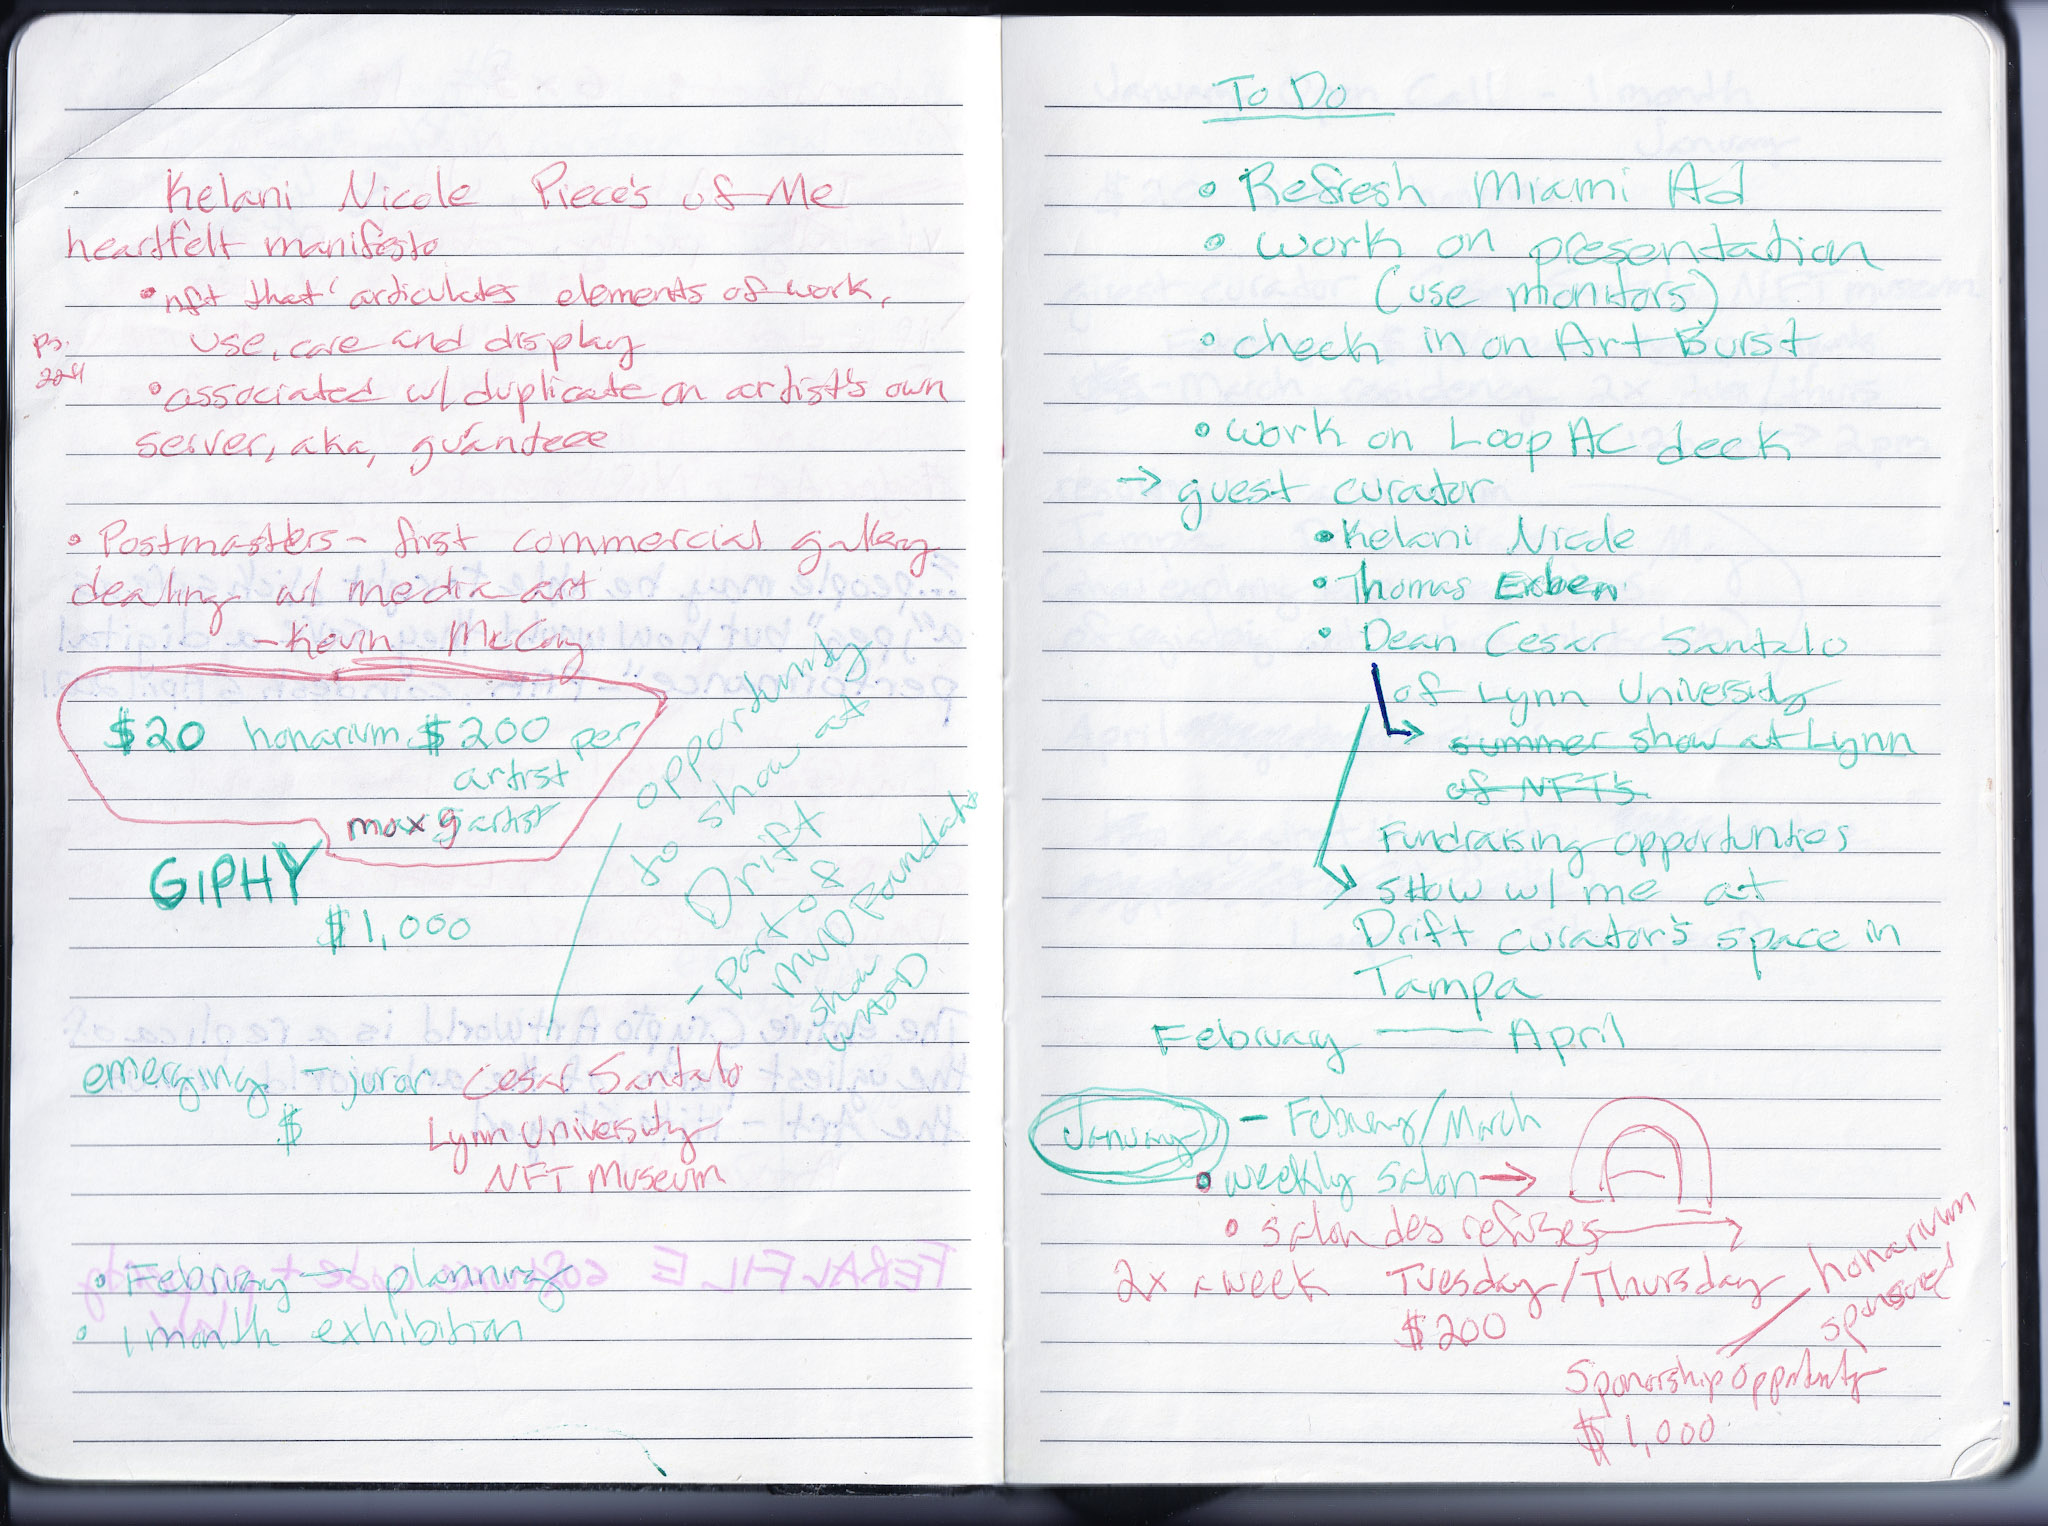 Kelani Nicole Piece's of Me
heartfelt manifesto
• nft that articulates elements of work,
use, care and display
pg.
224
• associated w/ duplicate on artist's own
server, aka, guanteee
• Postmasters - first commercial gallery
dealing w/ media art
- Kevin McCoy
$20 honarium $200 per
artist
max 9 artist
GIPHY
$1,000
opportunity
to show at
Drift
- part of
MUD Foundation
show
emerging - juror Cesar Santalo
$ Lynn University
NFT Museum
• February - planning
• 1 month exhibition
To Do
• Refresh Miami Ad
• work on presentation
(use monitors)
• check in on Art Burst
• work on Loop AC deck
→ guest curator
• Kelani Nicole
• Thomas Erben
• Dean Cesar Santalo
of Lynn University
summer show at Lynn
of NFT's
Fundraising opportunties
show w/ me at
Drift curator's space in
Tampa
February — April
January - Februray/March
• weekly salon →
• salon des refuses
2x a week Tuesday/Thursday
honarium
sponsored
$200
Sponorship opportunty
$1,000